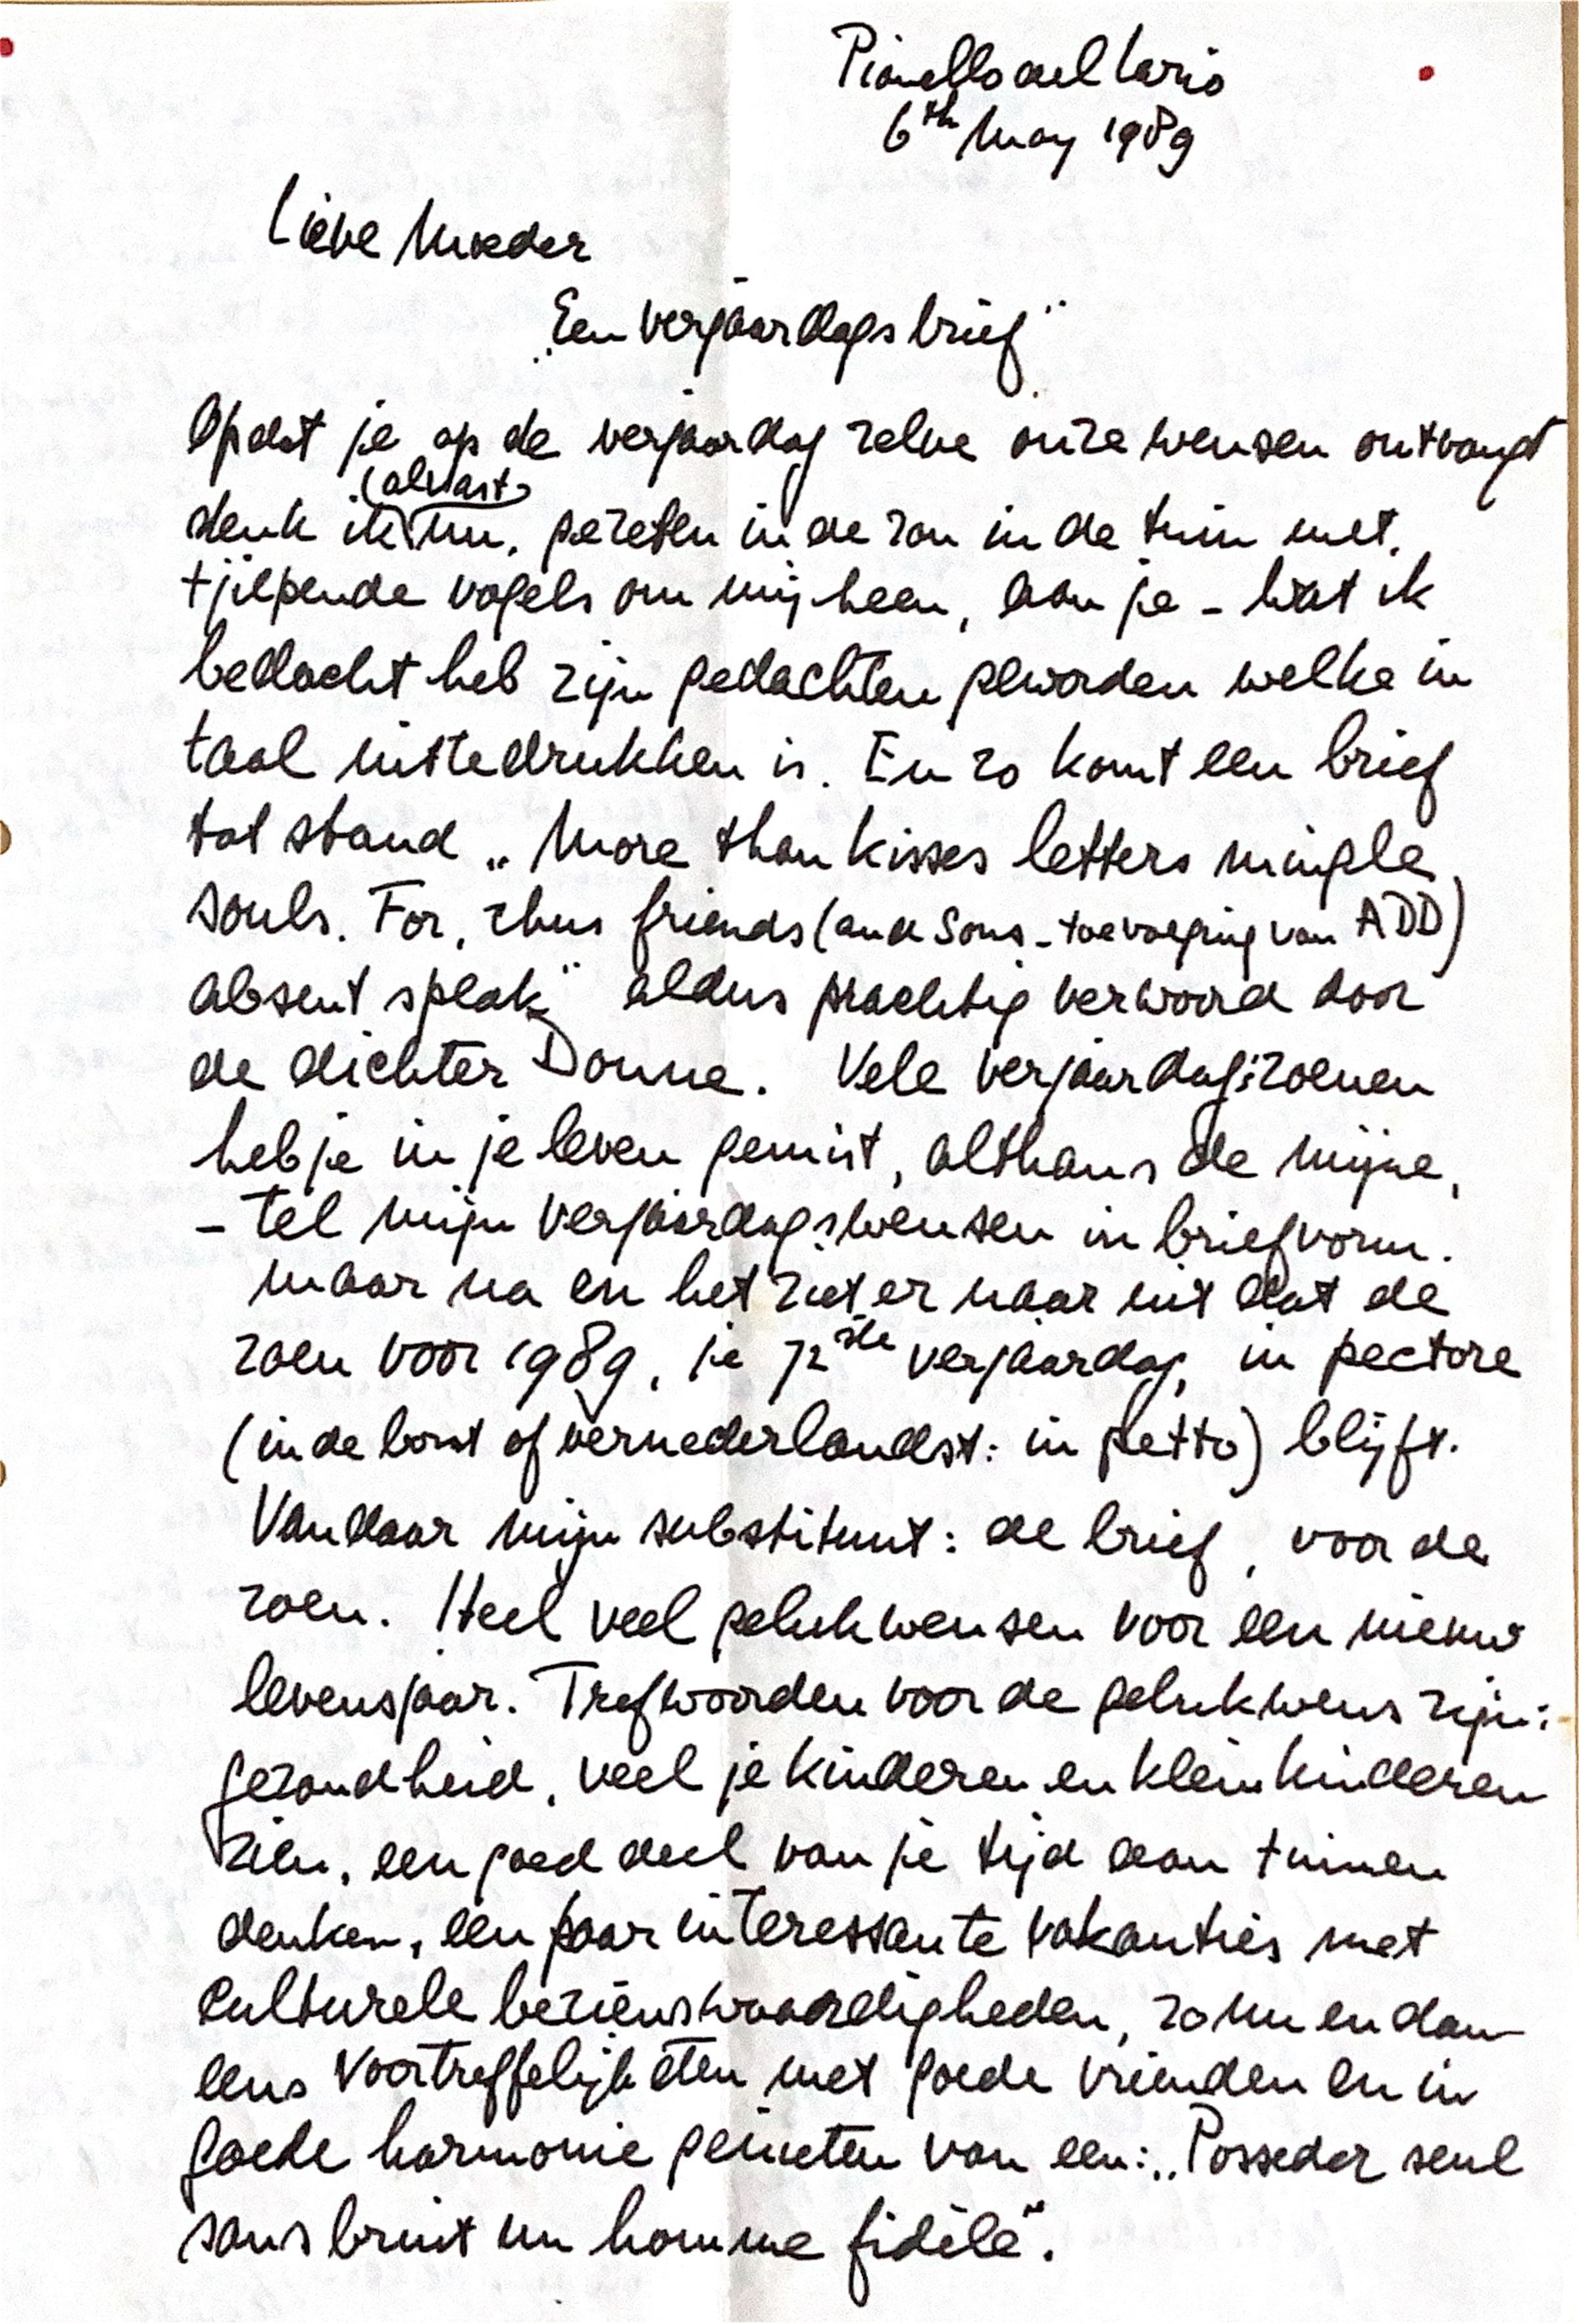 Pianello del Lario
6th May 1989
Lieve Moeder
„Een verjaardagsbrief"
Opdat je op de verjaardag zelve onze wensen ontvangt
denk ik (alvast) nu, gezeten in de zon in de tuin met
tjilpende vogels om mij heen, aan je - wat ik
bedacht heb zijn gedachten geworden welke in
taal uit te drukken is. En zo komt een brief
tot stand „More than kisses letters mingle
souls. For, thus friends (and Sons - toevoeging van ADD)
absent speak" aldus prachtig verwoord door
de dichter Donne. Vele verjaardagszoenen
heb je in je leven gemist, althans de mijne,
- tel mijn verjaardagswensen in briefvorm.
maar na en het ziet er naar uit dat de
zoen voor 1989, je 72ste verjaardag, in pectore
(in de borst of vernederlandst: in petto) blijft.
Vandaar mijn substituut: de brief, voor de
zoen. Heel veel gelukwensen voor een nieuw
levensjaar. Trefwoorden voor de gelukwens zijn:
gezondheid, veel je kinderen en kleinkinderen
zien, een goed deel van je tijd aan tuinen
denken, een paar interessante vakanties met
culturele bezienswaardigheden, zo nu en dan
eens voortreffelijk eten met goede vrienden en in
goede harmonie genieten van een: „Posseder seul
sans bruit un homme fidèle".